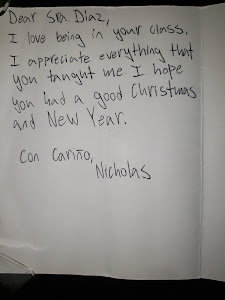 Dear Sra Diaz,
I love being in your class.
I appreciate everything that
you taught me I hope
you had a good Christmas
and New Year.
Con Cariño,
Nicholas